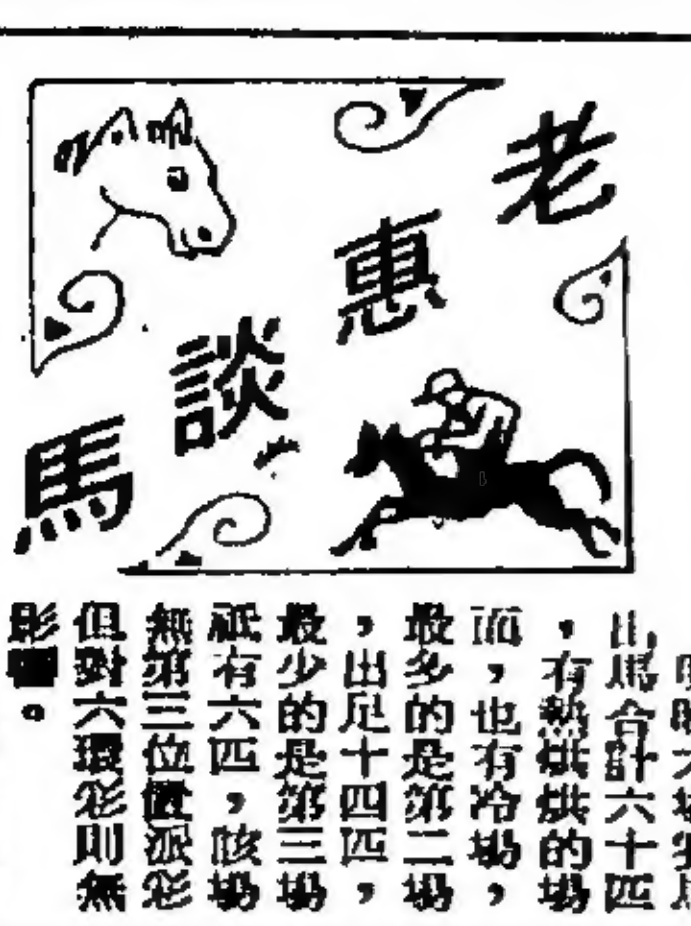 老惠談馬
出馬合計六十四
，有熱烘烘的場
面，也有冷場，
最多的是第二場
，出足十四匹，
最少的是第三場
祇有六匹，該場
無第三位置派彩
但對六環彩則無
影響。